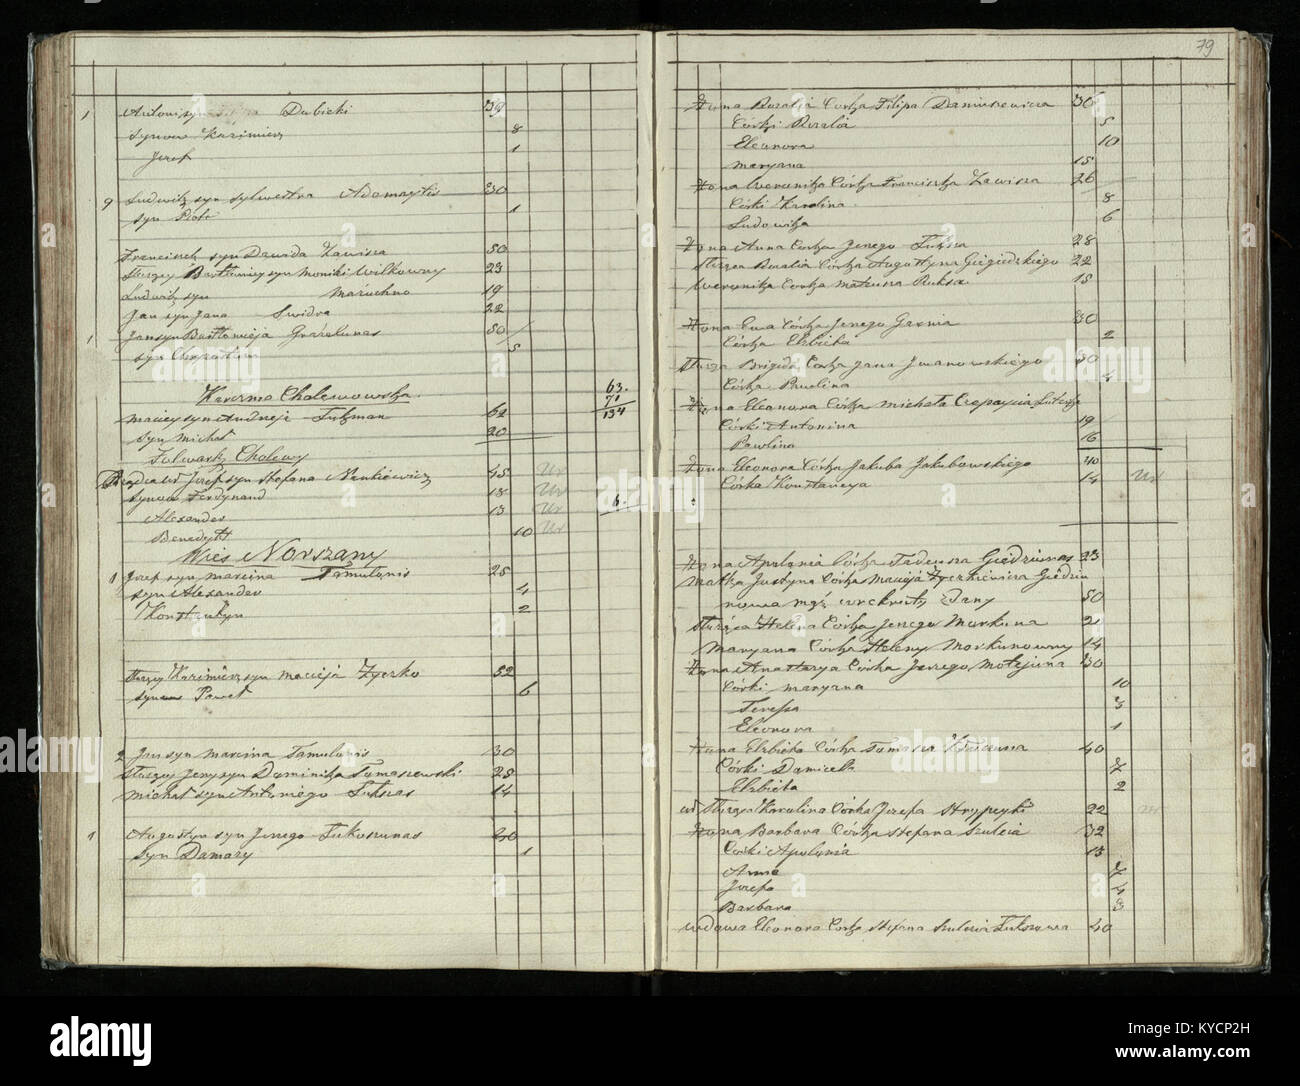 79
1 Antoni syn Filipa Dubicki 39
Synow Kazimierz 8
Jozef 1
9 Ludwik syn Sylwestra Adamaytis 30
Syn Piotr 1
Franciszek syn Dawida Zawisza 50
Służący Bartłomiey syn Moniki Wilkowny 23
Ludwik syn Maruchno 19
Jan syn Jana Swidra 22
1 Jan syn Bartłomieja Grażulunas 50
Syn 5
Karczma Cholewowska 63.
71
134
Maciey syn Andrzeja Tuzman 62
Syn Michał 20
Folwark Cholewy
Jozef syn Stefana Narkiewicz 45 Ur
Synow Ferdynand 18 Ur 6.
Alexander 13 Ur
Benedykt 10 Ur
Wieś Norszany
1 Jozef syn Marcina Tamulanis 25
Syn Alexander 4
Konstantyn 2
Służący Kazimierz syn Macieja Zyczko 52
Synow Paweł 6
2 Jan syn Marcina Tamulanis 30
Służący Jerzy syn Dominika Tomaszewski 28
Michał syn Antoniego Lukszas 14
1 Augustyn syn Jerzego Lukoszunas 40
Syn Damazy 1
Żona Rozalia Córka Filipa Daniuszewicza 36
Córki Rozalia 5
Eleonora 10
Maryana 15
Żona Weronika Córka Franciszka Zawisza 26
Córki Karolina 8
Ludowika 6
Żona Anna Córka Jerzego 28
Służąca Rozalia Córka Augustyna Giegiedzkiego 22
Weronika Córka Mateusza Ruksza 18
Żona Ewa Córka Jerzego 30
Córka Elżbieta 2
Służąca Brigida Córka Jana Jwanowskiego 30
Córka Pawlina 4
Żona Eleonora Córka Michała
Córki Antonina 19
Pawlina 16
Żona Eleonora Córka Jakuba Jakubowskiego 40
Córka Konstancya 14 Ur
Żona Apolonia Córka Tadeusza Giedziunas 23
Matka Justyna Córka Macieja Zyczkiewicza Giedziu
nowa mąż w rekruty Zdany 50
Służąca Helena Córka Jerzego Markuna 21
Maryana Córka Heleny Morkunowny 14
Żona Anastazya Córka Jerzego Motejuna 30
Córki Maryana 10
Teressa 3
Eleonora 1
Żona Elżbieta Córka Tomasza 40
Córki Damicela 7
Elżbieta 2
Służąca Karolina Córka Jozefa 22
Żona Barbara Córka Stefana Szulcia 32
Córki Apolonia 13
Anna 7
Jozefa 4
Barbara 3
wdowa Eleonora Córka Stefana Szulcia Lukszowa 40
alamy
alamy stock photo
KYCP2H
www.alamy.com